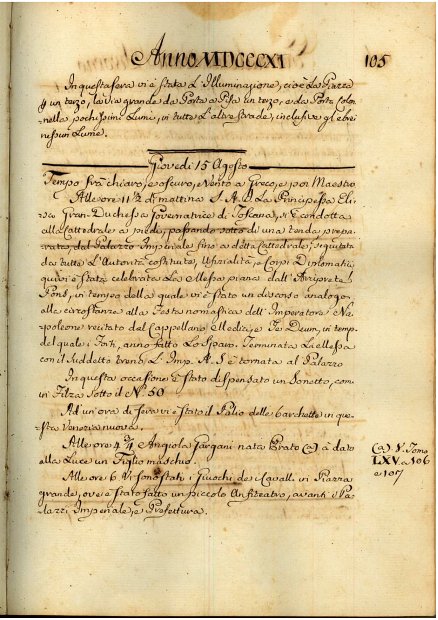 Anno MDCCCXI
105
In questa sera vi è stata L'Illuminazione, cioè La Piazza
un terzo, la via grande da Porta a Pisa un terzo, e da Porta Colon-
nella pochissimi Lumi, in tutte L'altre strade, inclusive gl'ebrei
nissun Lume.
Giovedì 15 Agosto
Tempo frà chiaro, e oscuro, e Vento a Greco, e poi Maestro
Alle ore 11 1/2 di mattina S. A. I. La Principessa Eli-
sa Gran-Duchessa Governatrice di Toscana, si è condotta
alla Cattedrale a piedi, passando sotto di una tenda prepa-
rata, dal Palazzo Imperiale fino a detta Cattedrale; seguitata
da tutte L'Autorità costituite, Ufizialità, e Corpi Diplomatici
quivi è stata celebrata La Messa piana dall'Arciprete
Pons, in tempo della quale vi è stato un discorso analogo
alle circostanze alla Festa nomastica dell'Imperatore Na-
poleone recitato dal Cappellano Medici, e Te Deum, in temp.
del quale i Forti, anno fatto Lo sparo. Terminata La Messa
con il suddetto treno L'Imp. A. S. è tornata al Palazzo
In questa occasione è stato dispensato un Sonetto, com
in Filza sotto il N.º 50
Ad un'ora di sera vi è stato il Palio delle barchette in que-
sta Venezia nuova.
Alle ore 4 3/4 Angiola Gargani nata Prato (a) à dato
alla Luce un Figlio maschio.
(a) V. Tomo
LXV. a 106
e 107
Alle ore 6 Vi sono stati i Giuochi de i Cavalli in Piazza
grande, ove è stato fatto un piccolo Anfiteatro, avanti i Pa-
lazzi Imperiale, e Prefettura.